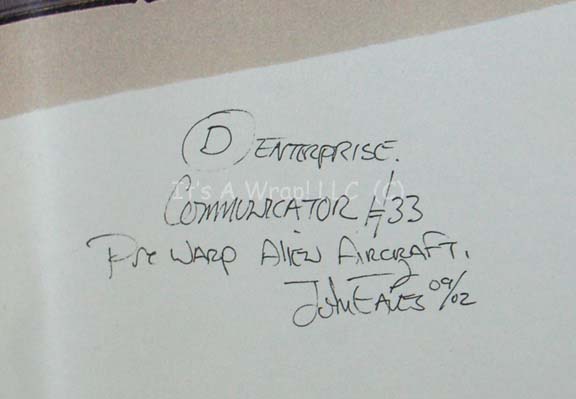 D ENTERPRISE.
It's A Wrap! LLC (C)
COMMUNICATOR #33
Pre WARP ALIEN AIRCRAFT.
John EAVES 09/02